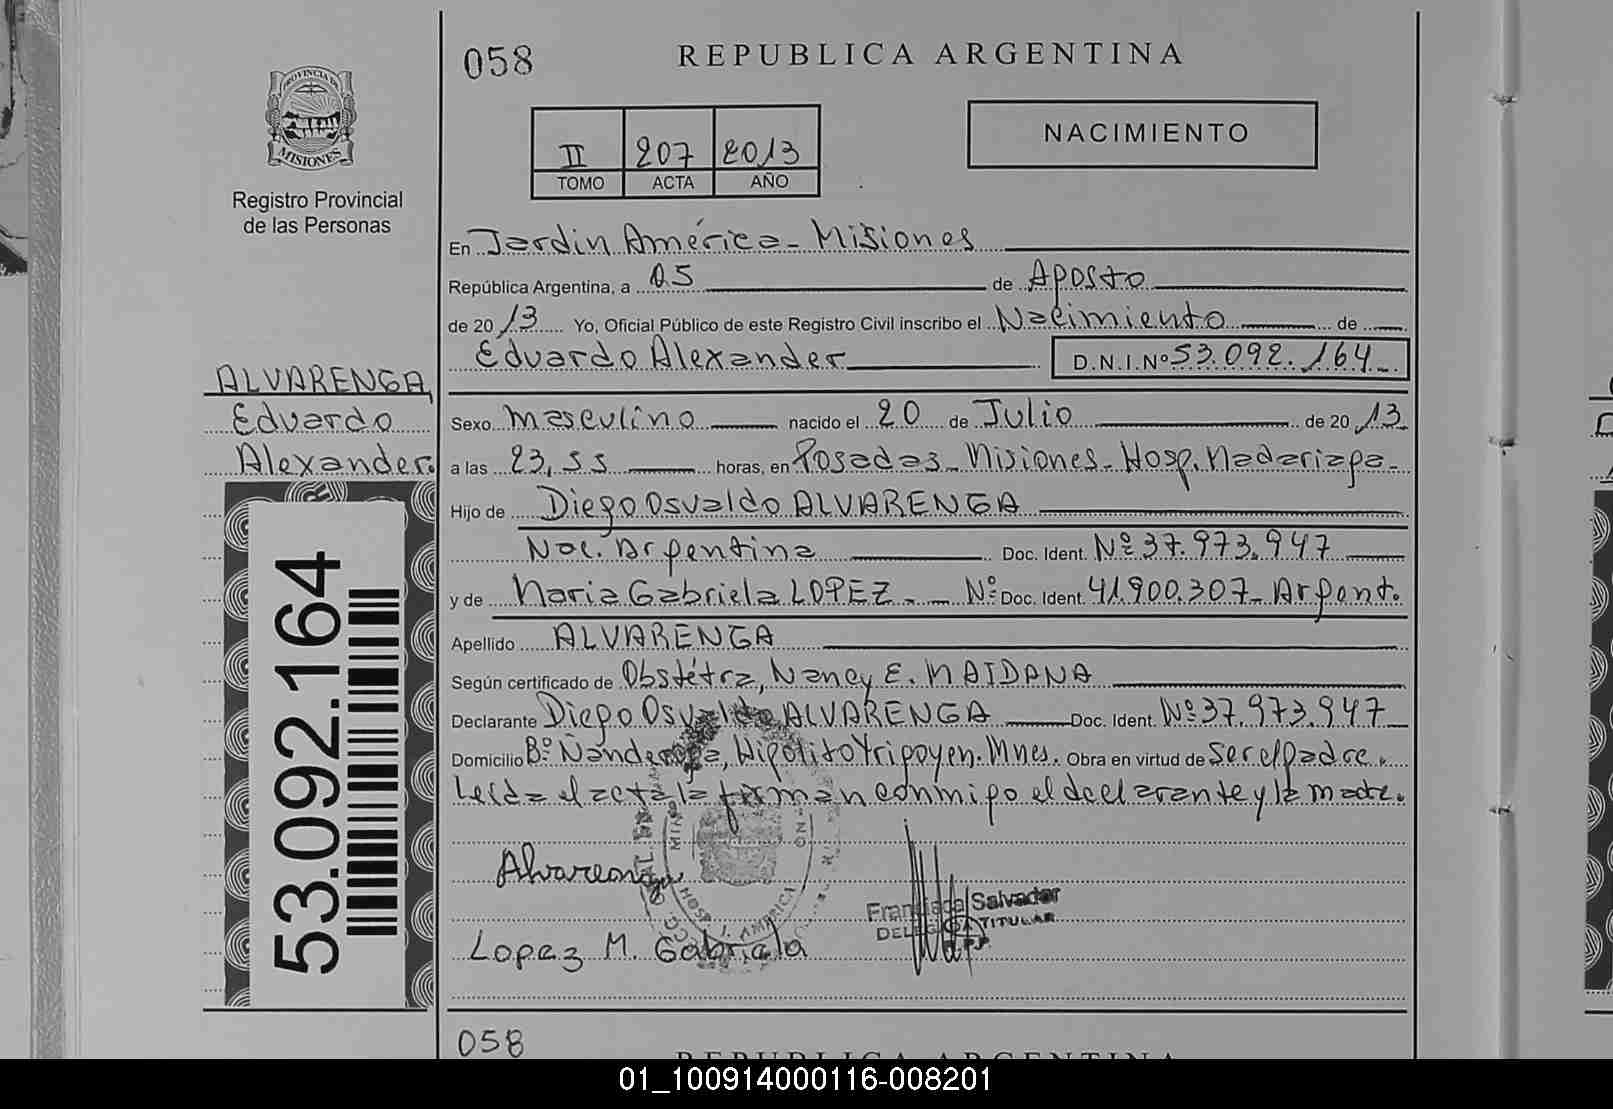 058
REPUBLICA ARGENTINA
PROVINCIA DE
MISIONES
Registro Provincial
de las Personas
II 207 2013
TOMO ACTA AÑO
NACIMIENTO
En Jardin América - Misiones
República Argentina, a 05 de Agosto
de 2013 Yo, Oficial Público de este Registro Civil inscribo el Nacimiento de
Eduardo Alexander D.N.I.Nº 53.092.164
ALVARENGA
Eduardo
Alexander.
Sexo masculino nacido el 20 de Julio de 2013
a las 23,55 horas, en Posadas - Misiones - Hosp. Madariaga -
Hijo de Diego Osvaldo ALVARENGA
Nac. Argentina Doc. Ident. Nº 37.973.947
y de Maria Gabriela LOPEZ. - Nº Doc. Ident. 41.900.307 - Argent.
Apellido ALVARENGA
Según certificado de Obstétra, Nancy E. MAIDANA
Declarante Diego Osvaldo ALVARENGA Doc. Ident. Nº 37.973.947
Domicilio Bº. Ñanderoga, Hipolito Yrigoyen. Mnes. Obra en virtud de ser el padre.
Leida el acta la firman conmigo el declarante y la madre.
53.092.164
Alvarenga
Lopez M. Gabriela
Francisca Salvador
DELEGADA TITULAR
R.P.P
058
REPUBLICA ARGENTINA
01_100914000116-008201